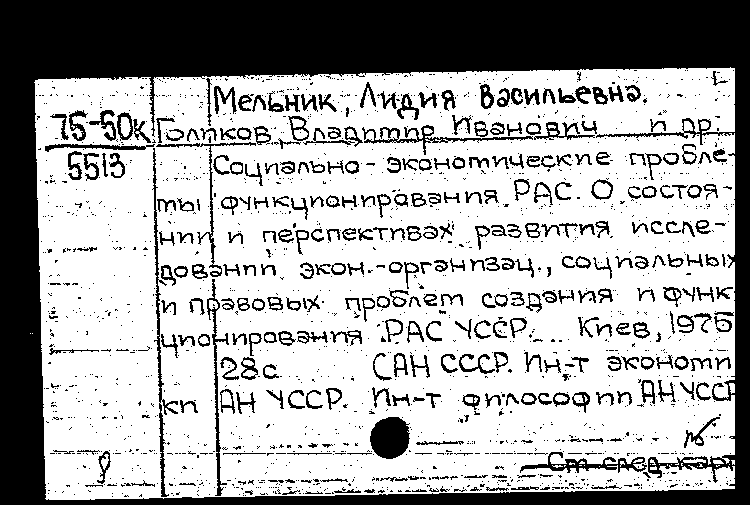 Мельник, Лидия Васильевна.
75-50к Голиков, Владимир Иванович и др.
5513 Социально-экономические пробле-
мы функционирования РАС. О состоя-
нии и перспективах развития иссле-
дований экон.-организац., социальных
и правовых проблем создания и функ
ционирования РАС УССР. Киев, 1975
28с САН СССР. Ин-т экономи
ки АН УССР. Ин-т философии АН УССР
См след. карт